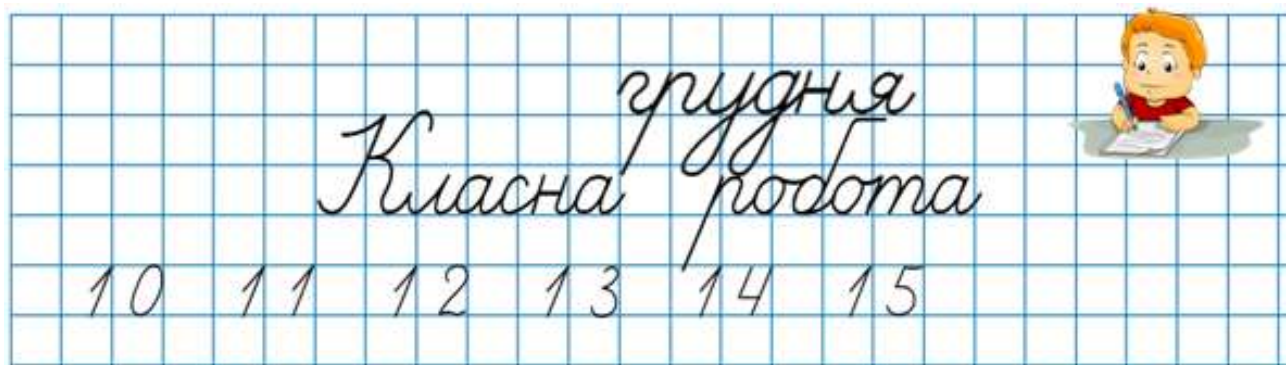 грудня
Класна робота
10 11 12 13 14 15